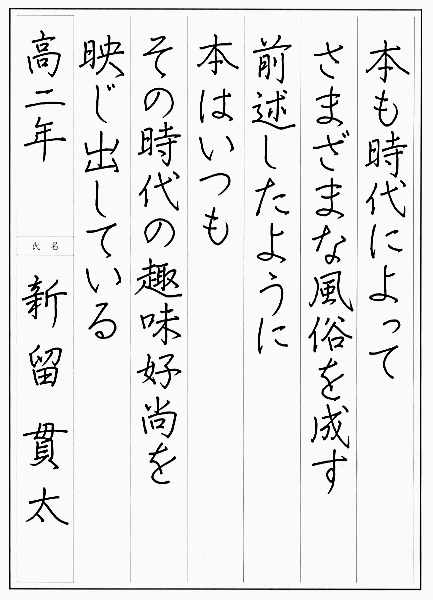 本も時代によって
さまざまな風俗を成す
前述したように
本はいつも
その時代の趣味好尚を
映じ出している
高二年
氏名
新留貫太